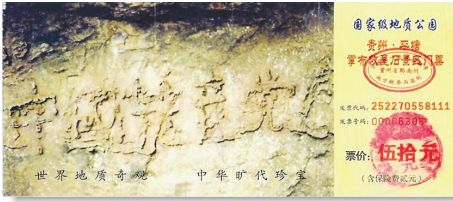 中國共産党亡
世界地质奇观 中华旷代珍宝
国家级地质公园
贵州·平塘
掌布藏字石景区门票
贵州省黔南州
发票代码：252270558111
发票号码：
票价：伍拾元
（含保险费贰元）